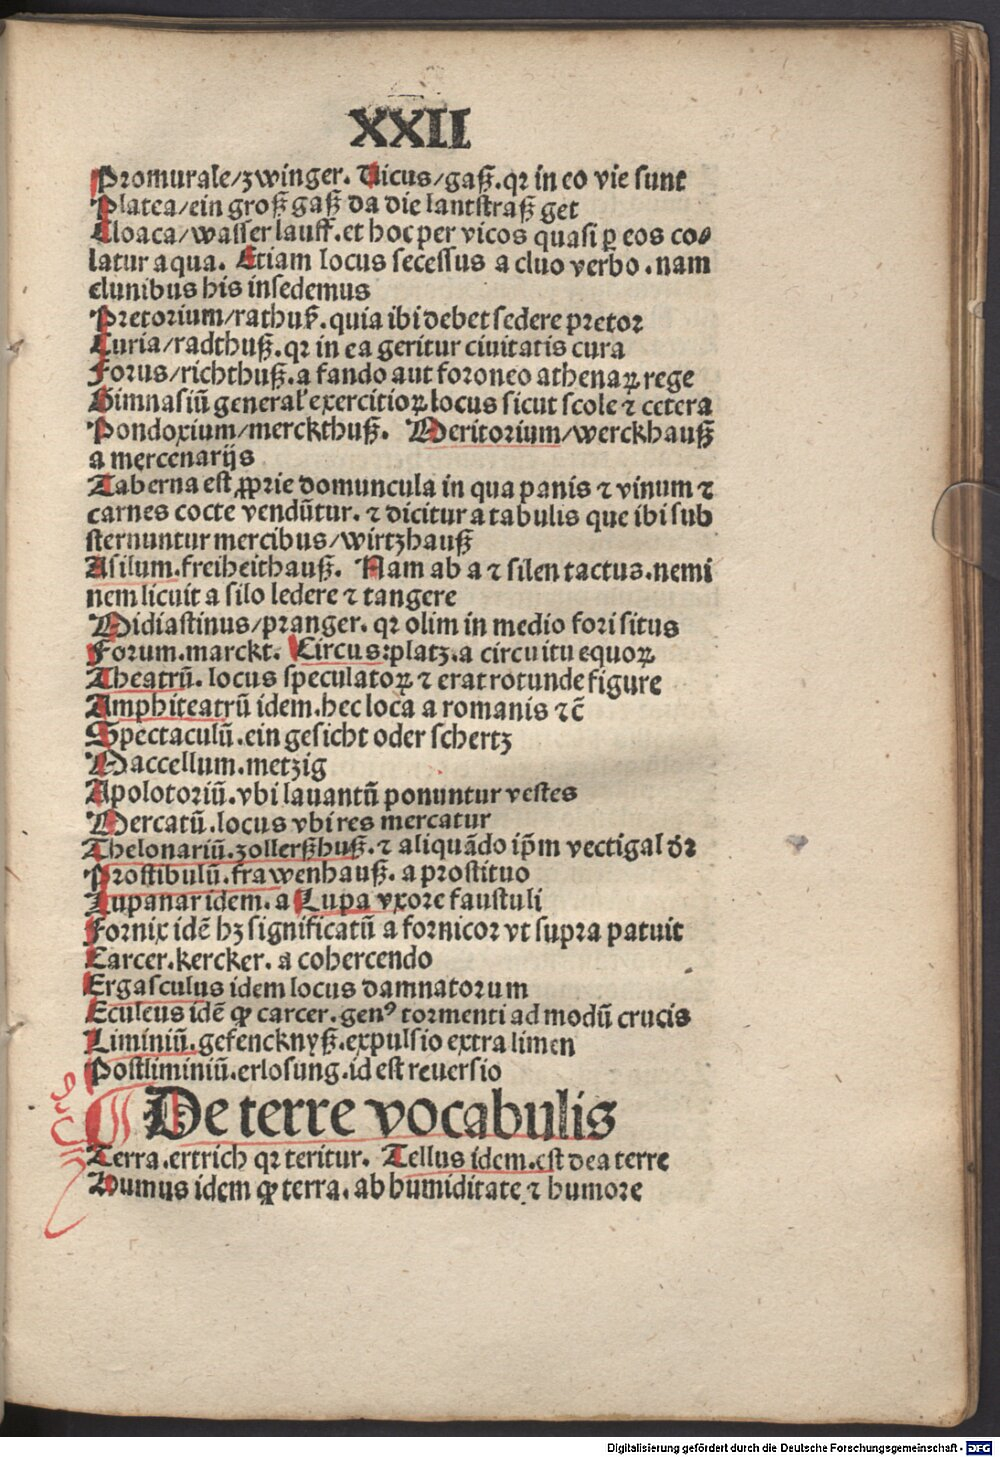 XXII
Promurale/zwinger. Vicus/gaß.qꝛ in eo vie sunt
Platea/ein groß gaß da die lantstraß get
Cloaca/wasser lauff.et hoc per vicos quasi ꝑ eos co⸗
latur aqua. Etiam locus secessus a cluo verbo.nam
clunibus his insedemus
Pretorium/rathuß.quia ibi debet sedere pretor
Curia/radthuß.qꝛ in ea geritur ciuitatis cura
Forus/richthuß.a fando aut foroneo athenaꝝ rege
Gimnasiū general' exercitioꝝ locus sicut scole ⁊ cetera
Pondoxium/merckthuß. Meritorium/werckhauß
a mercenarijs
Taberna est ꝓprie domuncula in qua panis ⁊ vinum ⁊
carnes cocte vendūtur. ⁊ dicitur a tabulis que ibi sub
sternuntur mercibus/wirtzhauß
Asilum.freiheithauß. Nam ab a ⁊ silen tactus.nemi
nem licuit a silo ledere ⁊ tangere
Midiastinus/pranger. qꝛ olim in medio fori situs
Forum.marckt. Circus:platz.a circuitu equoꝝ
Theatrū. locus speculatoꝝ ⁊ erat rotunde figure
Amphiteatrū idem.hec loca a romanis ⁊c̄
Spectaculū.ein gesicht oder schertz
Maccellum.metzig
Apolotoriū.vbi lauantū ponuntur vestes
Mercatū.locus vbi res mercatur
Thelonariū.zollerßhuß.⁊ aliquādo ip̄m vectigal dr̄
Prostibulū.frawenhauß. a prostituo
Lupanar idem.a Lupa vxore faustuli
Fornix idē hꝫ significatū a fornicor vt supra patuit
Carcer.kercker. a cohercendo
Ergasculus idem locus damnatorum
Eculeus idē ꝙ carcer.genꝰ tormenti ad modū crucis
Liminiū.gefencknyß.expulsio extra limen
Postliminiū.erlosung.id est reuersio
¶ De terre vocabulis
Terra.ertrich qꝛ teritur. Tellus idem.est dea terre
Humus idem ꝙ terra. ab humiditate ⁊ humore
Digitalisierung gefördert durch die Deutsche Forschungsgemeinschaft - DFG